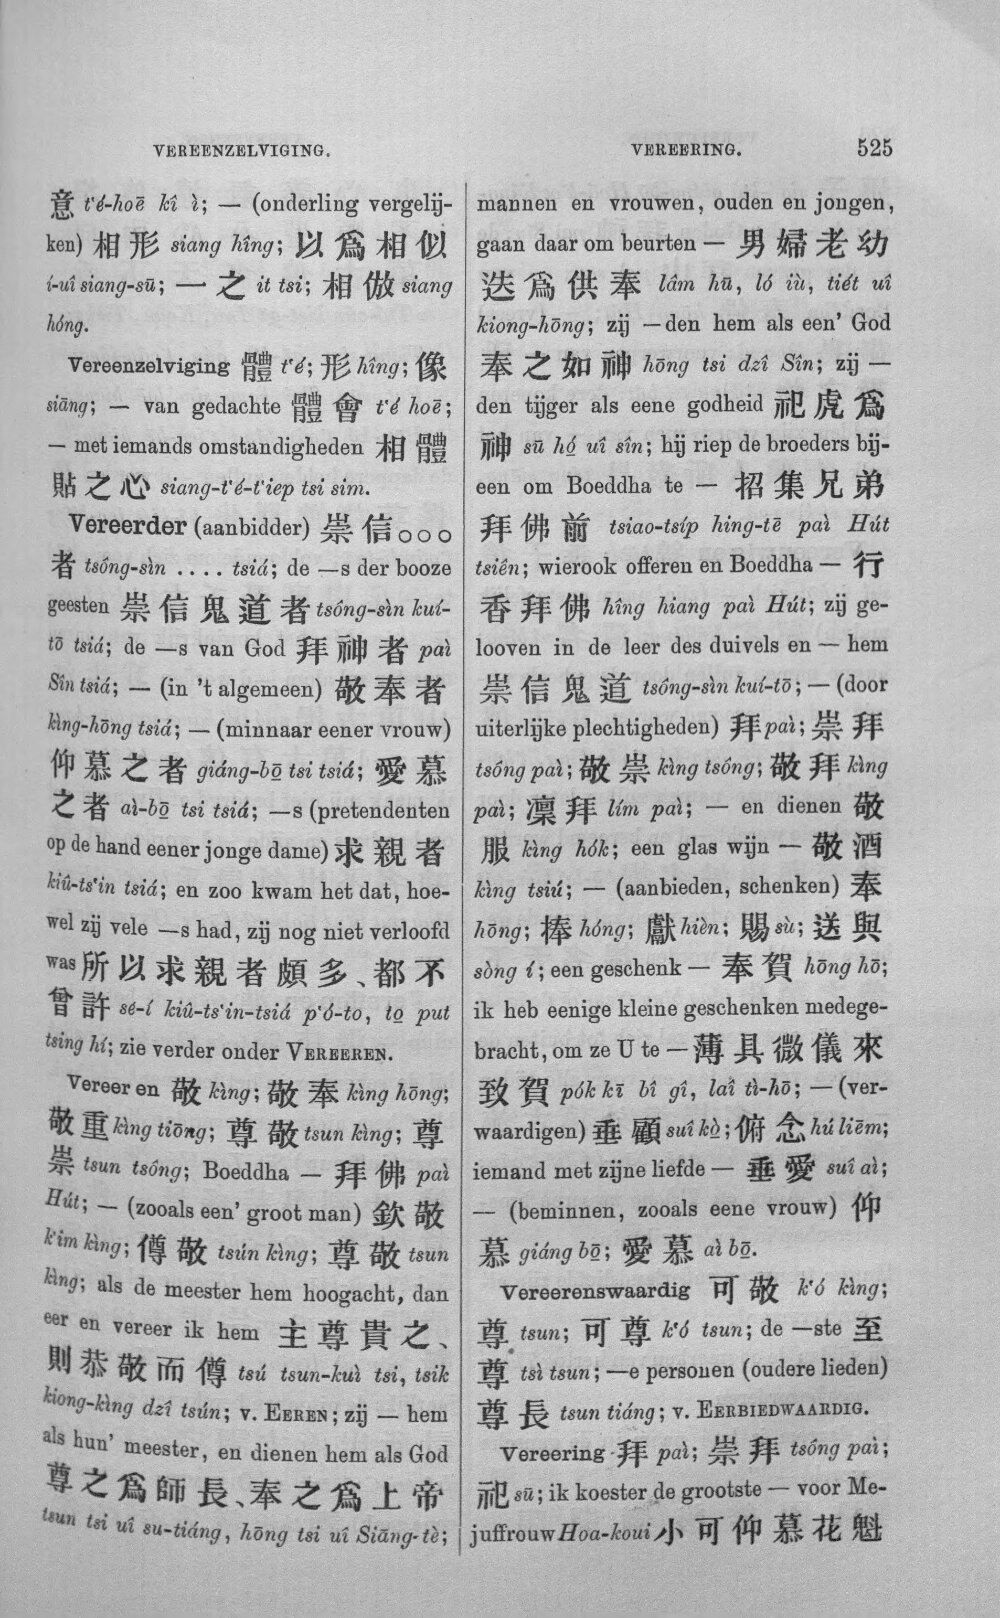 VEREENZELVIGING.
VEREERING.
525
意 t‘é-hoē kî ì; — (onderling vergelij-
ken) 相形 siang hîng; 以爲相似
í-uî siang-sū; 一之 it tsi; 相倣 siang
hóng.
Vereenzelviging 體 t‘é; 形 hîng; 像
siāng; — van gedachte 體會 t‘é hoē;
— met iemands omstandigheden 相體
貼之心 siang-t‘é-t‘iep tsi sim.
Vereerder (aanbidder) 崇信○○○
者 tsông-sìn .... tsiá; de —s der booze
geesten 崇信鬼道者 tsóng-sìn kuí-
tō tsiá; de —s van God 拜神者 paì
Sîn tsiá; — (in ’t algemeen) 敬奉者
kìng-hōng tsiá; — (minnaar eener vrouw)
仰慕之者 giáng-bō̤ tsi tsiá; 愛慕
之者 aì-bō̤ tsi tsiá; —s (pretendenten
op de hand eener jonge dame) 求親者
kiû-ts‘in tsiá; en zoo kwam het dat, hoe-
wel zij vele —s had, zij nog niet verloofd
was 所以求親者頗多、都不
曾許 sé-í kiû-ts‘in-tsiá p‘ó-to, to̤ put
tsing hí; zie verder onder VEREEREN.
Vereeren 敬 kìng; 敬奉 kìng hōng;
敬重 kìng tiōng; 尊敬 tsun kìng; 尊
崇 tsun tsóng; Boeddha — 拜佛 paì
Hút; — (zooals een’ groot man) 欽敬
k‘im kìng; 僔敬 tsún kìng; 尊敬 tsun
kìng; als de meester hem hoogacht, dan
eer en vereer ik hem 主尊貴之、
則恭敬而僔 tsú tsun-kuì tsi, tsik
kiong-kìng dzî tsún; v. EEREN; zij — hem
als hun’ meester, en dienen hem als God
尊之爲師長、奉之爲上帝
tsun tsi uî su-tiáng, hōng tsi uî Siāng-tè;
mannen en vrouwen, ouden en jongen,
gaan daar om beurten — 男婦老幼
迭爲供奉 lâm hū, ló iù, tiét uî
kiong-hōng; zij —den hem als een’ God
奉之如神 hōng tsi dzî Sîn; zij —
den tijger als eene godheid 祀虎爲
神 sū hó̤ uî sîn; hij riep de broeders bij-
een om Boeddha te — 招集兄弟
拜佛前 tsiao-tsíp hing-tē paì Hút
tsiên; wierook offeren en Boeddha — 行
香拜佛 hîng hiang paì Hút; zij ge-
looven in de leer des duivels en — hem
崇信鬼道 tsóng-sìn kuí-tō; — (door
uiterlijke plechtigheden) 拜 paì; 崇拜
tsóng paì; 敬崇 kìng tsóng; 敬拜 kìng
paì; 凜拜 lím paì; — en dienen 敬
服 kìng hók; een glas wijn — 敬酒
kìng tsiú; — (aanbieden, schenken) 奉
hōng; 捧 hóng; 獻 hièn; 賜 sù; 送與
sòng í; een geschenk — 奉賀 hōng hō;
ik heb eenige kleine geschenken medege-
bracht, om ze U te — 薄具微儀來
致賀 pók kī bî gî, laî tì-hō; — (ver-
waardigen) 垂顧 suî kò̤; 俯念 hú liēm;
iemand met zijne liefde — 垂愛 suî aì;
— (beminnen, zooals eene vrouw) 仰
慕 giáng bō̤; 愛慕 aì bō̤.
Vereerenswaardig 可敬 k‘ó kìng;
尊 tsun; 可尊 k‘ó tsun; de —ste 至
尊 tsì tsun; —e personen (oudere lieden)
尊長 tsun tiáng; v. EERBIEDWAARDIG.
Vereering 拜 paì; 崇拜 tsóng paì;
祀 sū; ik koester de grootste — voor Me-
juffrouw Hoa-koui 小可仰慕花魁